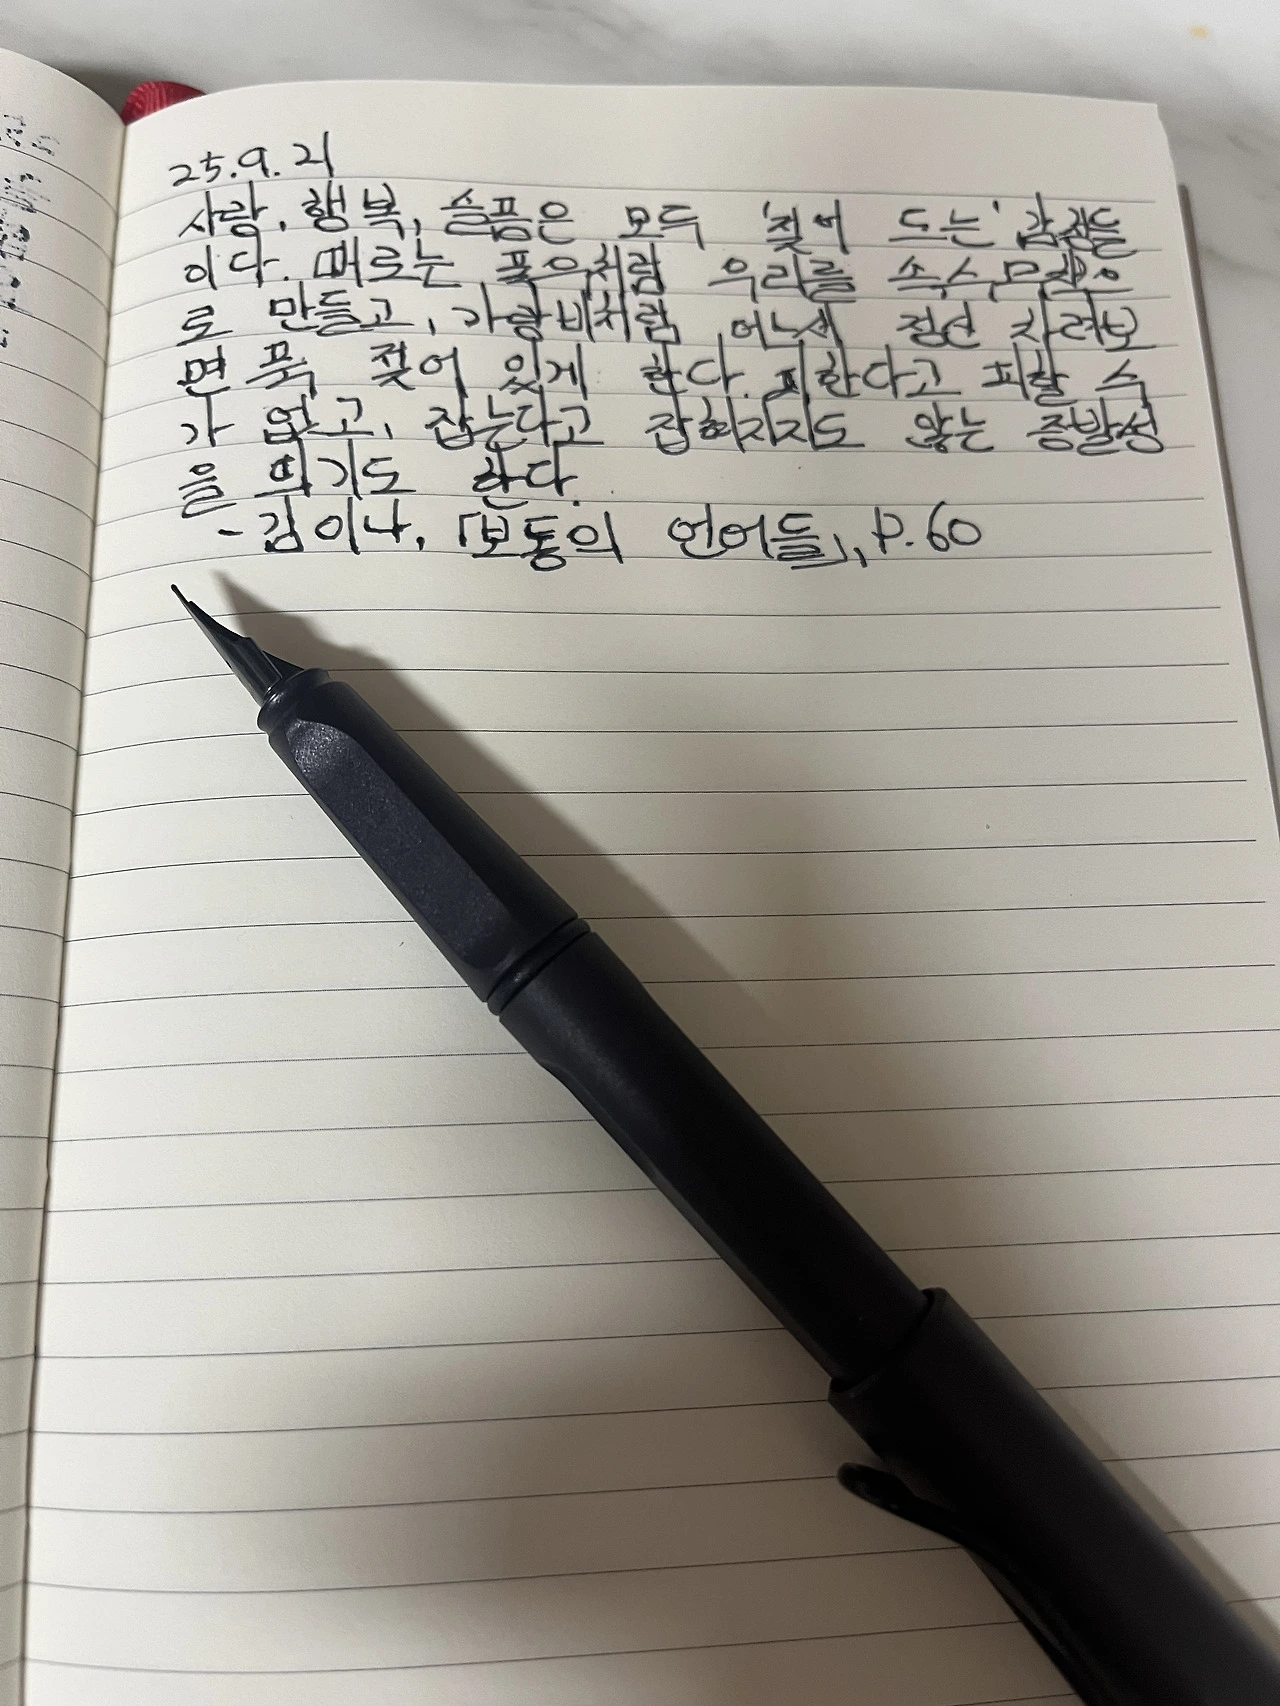 25.9.21
사랑, 행복, 슬픔은 모두 '젖어 드는' 감정들
이다. 때로는 폭우처럼 우리를 속수무책으
로 만들고, 가랑비처럼 어느새 정신 차려보
면 푹 젖어 있게 한다. 피한다고 피할 수
가 없고, 잡는다고 잡혀지지도 않는 증발성
을 띄기도 한다.
- 김이나, 「보통의 언어들」, p.60